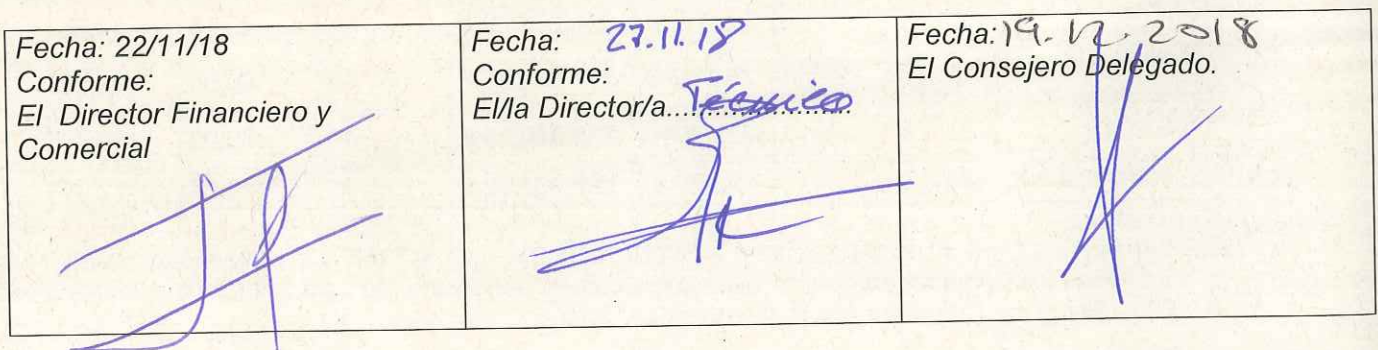 Fecha: 22/11/18
Conforme:
El Director Financiero y
Comercial
Fecha: 27.11.18
Conforme:
El/la Director/a...Técnico
Fecha: 19.12.2018
El Consejero Delegado.